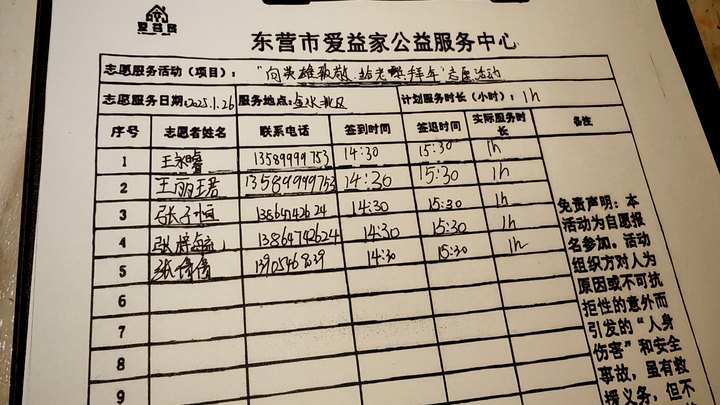 爱益家
东营市爱益家公益服务中心
志愿服务活动（项目）： “向英雄致敬 给老兵拜年”志愿活动
志愿服务日期：2025.1.26 服务地点： 计划服务时长（小时）：1h
序号 志愿者姓名 联系电话 签到时间 签退时间 实际服务时长 备注
1 王 13589999753 14:30 15:30 1h
2 王丽君 13589999753 14:30 15:30 1h
3 张子恒 13864742624 14:30 15:30 1h
4 张 13864742624 14:30 15:30 1h
5 张倩倩 14:30 15:30 1h
6
7
8
9
免责声明：本
活动为自愿报
名参加。活动
组织方对人为
原因或不可抗
拒性的意外而
引发的“人身
伤害”和安全
事故，虽有救
援义务，但不